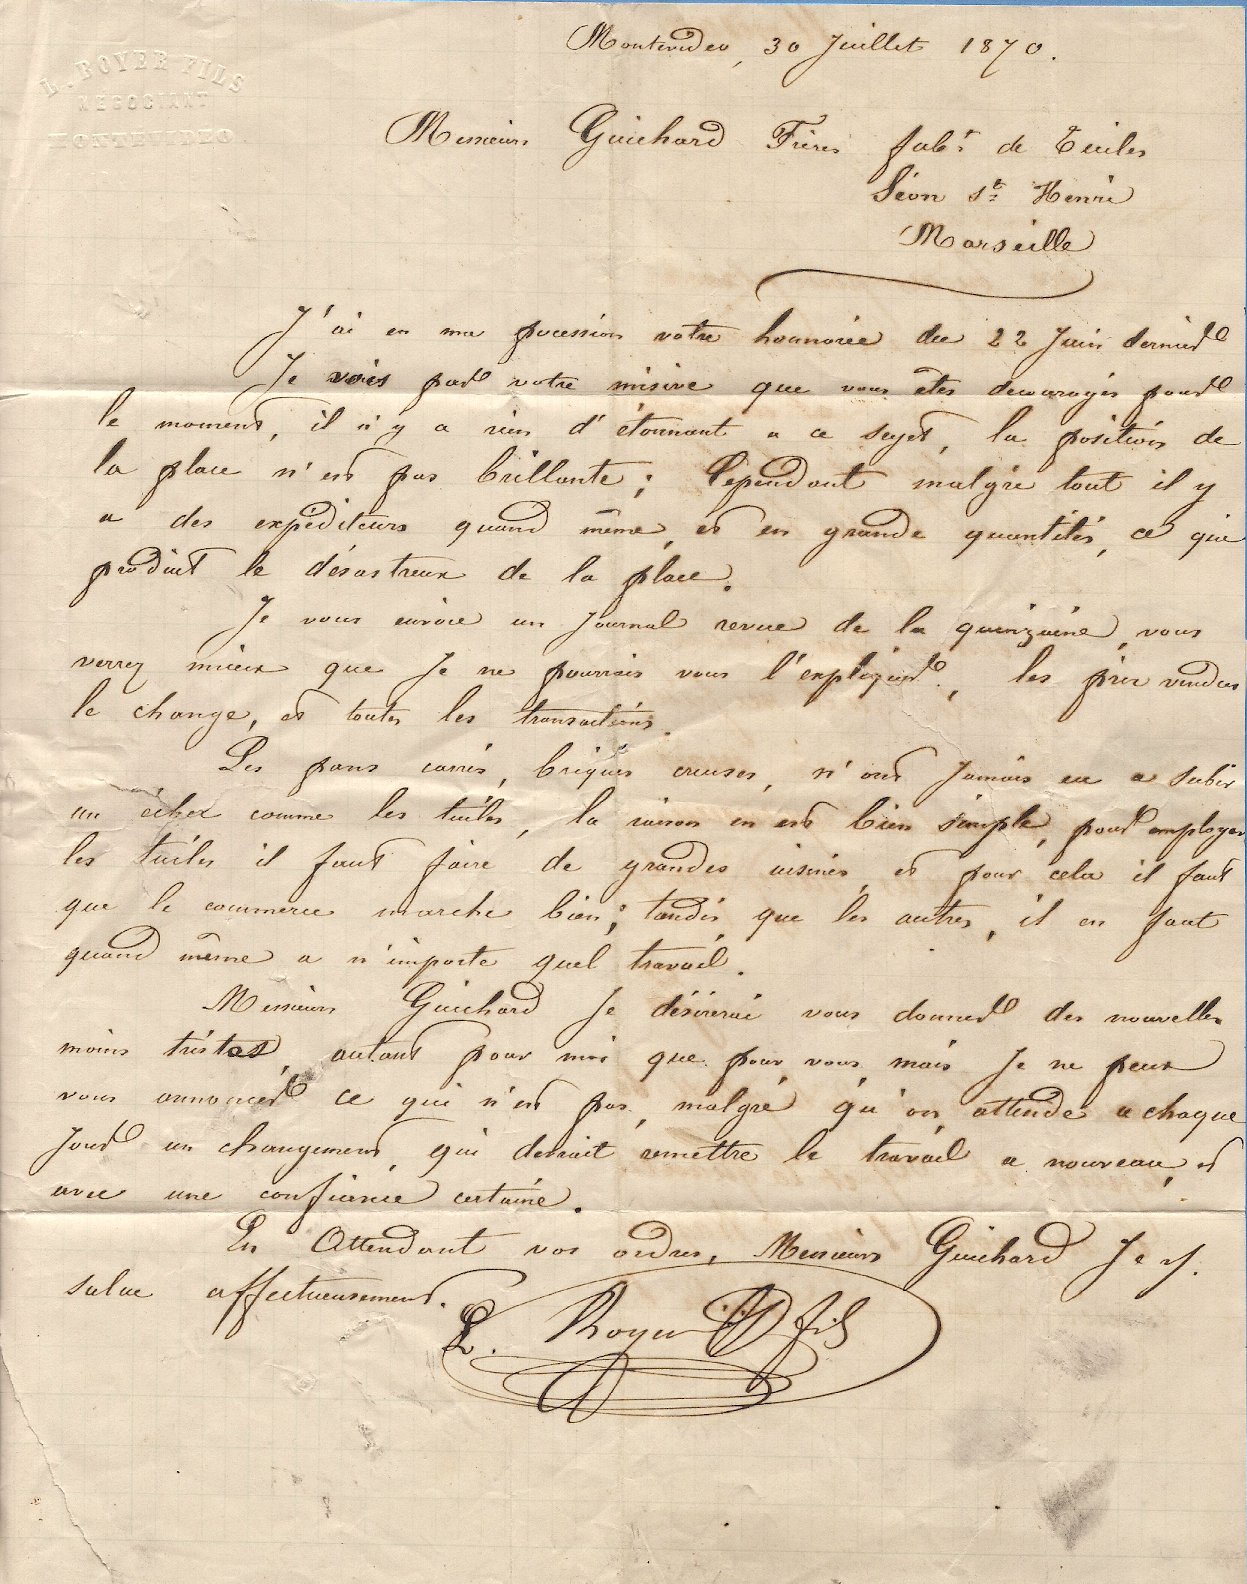 L. BOYER FILS
NEGOCIANT
MONTEVIDEO
Montevideo, 30 Juillet 1870.
Messieurs Guichard Frères fabts de Tuiles
Séon St Henri
Marseille
J'ai en ma pocession votre honnorée du 22 Juin dernier
Je vois par votre misive que vous êtes decouragés pour
le moment, il n'y a rien d'étonnant a ce sujet, la position de
la place n'est pas brillante; Cependant malgré tout il y
a des expéditeurs quand même, et en grande quantités, ce qui
produit le désastreux de la place.
Je vous envoie un Journal revue de la quinzaine, vous
verrez mieux que Je ne pourrais vous l'expliquer, les prix vendus
le change, et toutes les transactions.
Les pans carrés, briques creuses, n'ont Jamais eu a subir
un échec comme les tuiles, la raison en est bien simple, pour employer
les tuiles il faut faire de grandes usines, et pour cela il faut
que le commerce marche bien; tandis que les autres, il en faut
quand même a n'importe quel travail.
Messieurs Guichard Je désirerai vous donner des nouvelles
moins tristes, autant pour moi que pour vous, mais Je ne peux
vous annoncer ce qui n'est pas, malgré qu'on attende a chaque
Jour un changement, qui devrait remettre le travail a nouveau, et
avec une confiance certaine.
En Attendant vos ordres, Messieurs Guichard Je v.
salue affectueusement.
L. Boyer fils